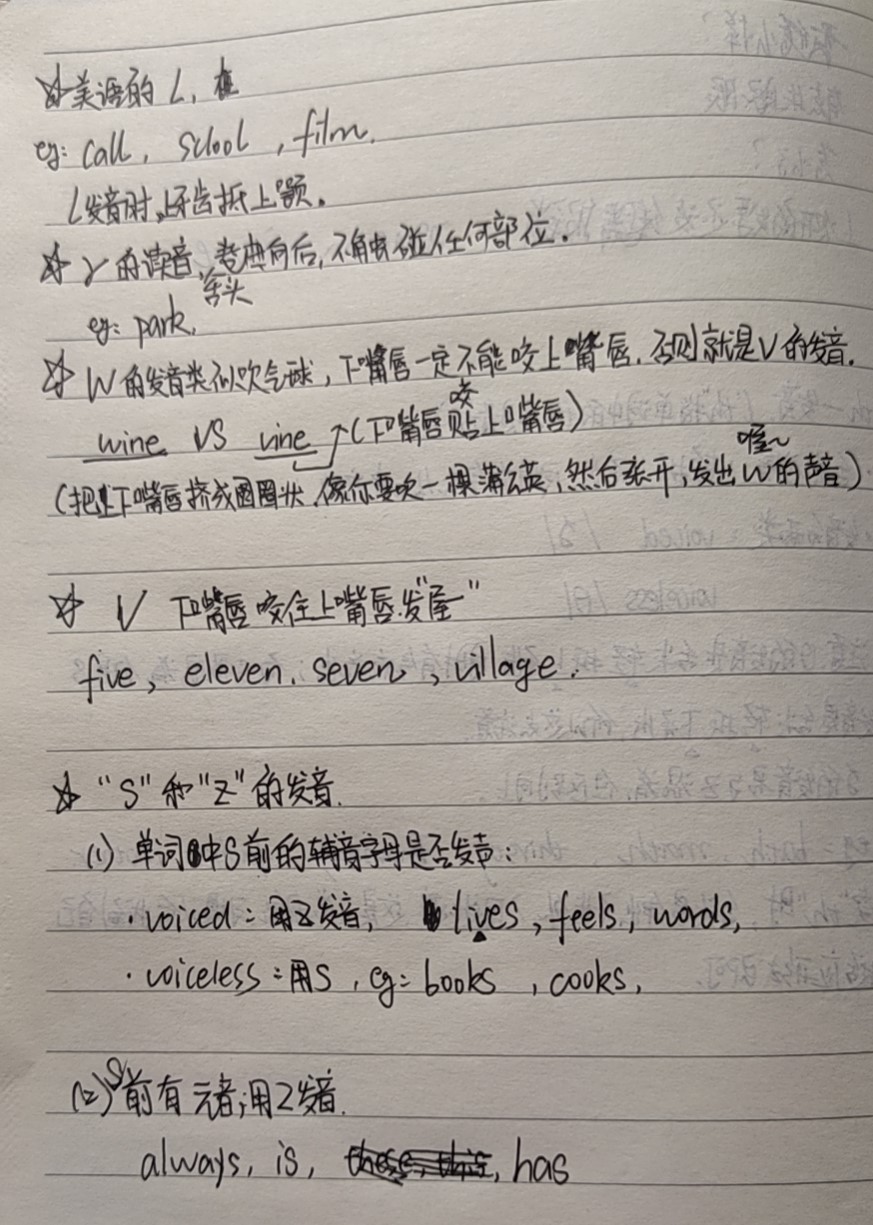 ☆ 美语的 L,
eg: call, school, film,
L发音时,牙齿抵上颚。
☆ r 的读音,卷曲向后,不能碰任何部位。
舌头
eg: park,
☆ W的发音类似吹气球,下嘴唇一定不能咬上嘴唇,否则就是V的发音。
咬
wine VS vine (下嘴唇贴上嘴唇)
喔~
(把上下嘴唇挤成圆圈状,像你要吹一棵蒲公英,然后张开,发出W的声音)
☆ V 下嘴唇咬住上嘴唇发"屋"
five, eleven, seven, village.
☆ "S"和"Z"的发音.
(1) 单词中S前的辅音字母是否发声:
· voiced: 用Z发音, lives, feels, words,
· voiceless: 用S, eg: books, cooks,
(2) S前有元音,用Z发音.
always, is, has